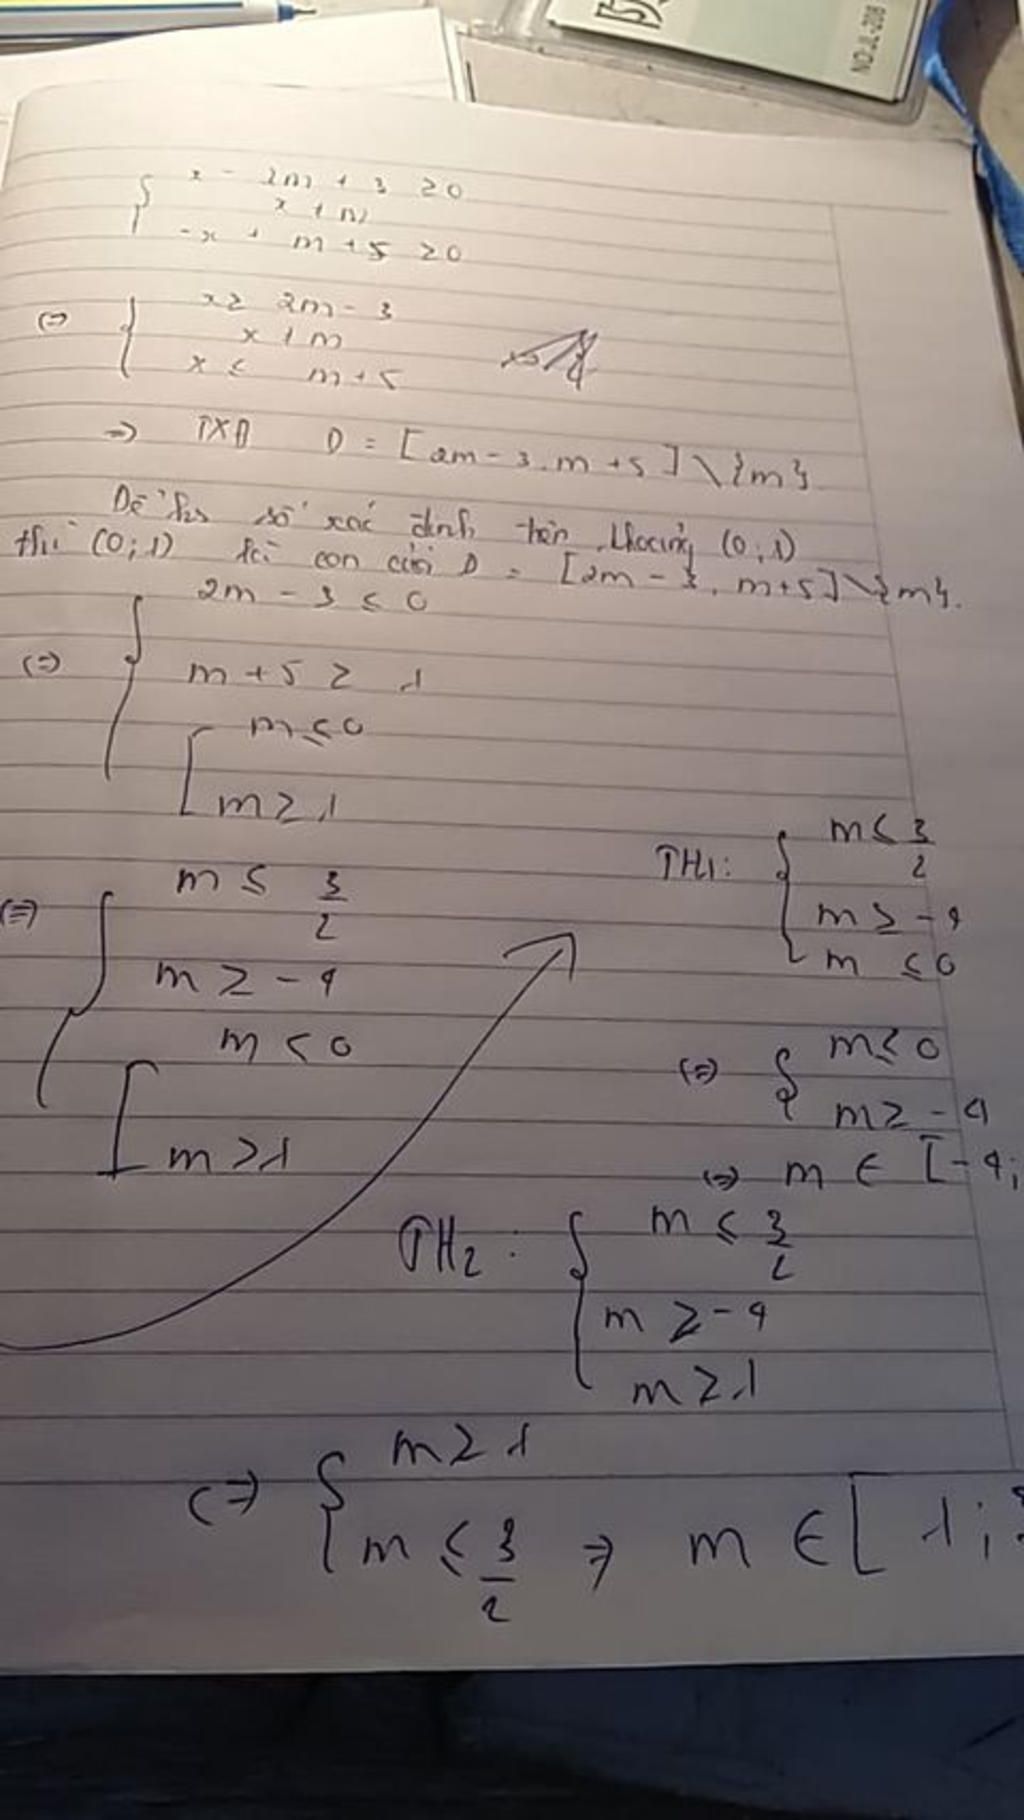 NO.JL-208
x - 2m + 3 ≥ 0
x ≠ m
-x + m + 5 ≥ 0
(=) x ≥ 2m - 3
x ≠ m
x ≤ m + 5
=> TXĐ D = [2m - 3, m + 5] \ {m}.
Để hàm số xác định trên khoảng (0; 1)
thì (0; 1) là con của D = [2m - 3, m + 5] \ {m}.
2m - 3 ≤ 0
(=) m + 5 ≥ 1
m ≤ 0
m ≥ 1
(=) m ≤ 3/2
m ≥ -4
m < 0
m > 1
TH1: m ≤ 3/2
m ≥ -4
m ≤ 0
(=) m ≤ 0
m ≥ -4
(=) m ∈ [-4;
TH2: m ≤ 3/2
m ≥ -4
m ≥ 1
(=) m ≥ 1
m ≤ 3/2 => m ∈ [1;